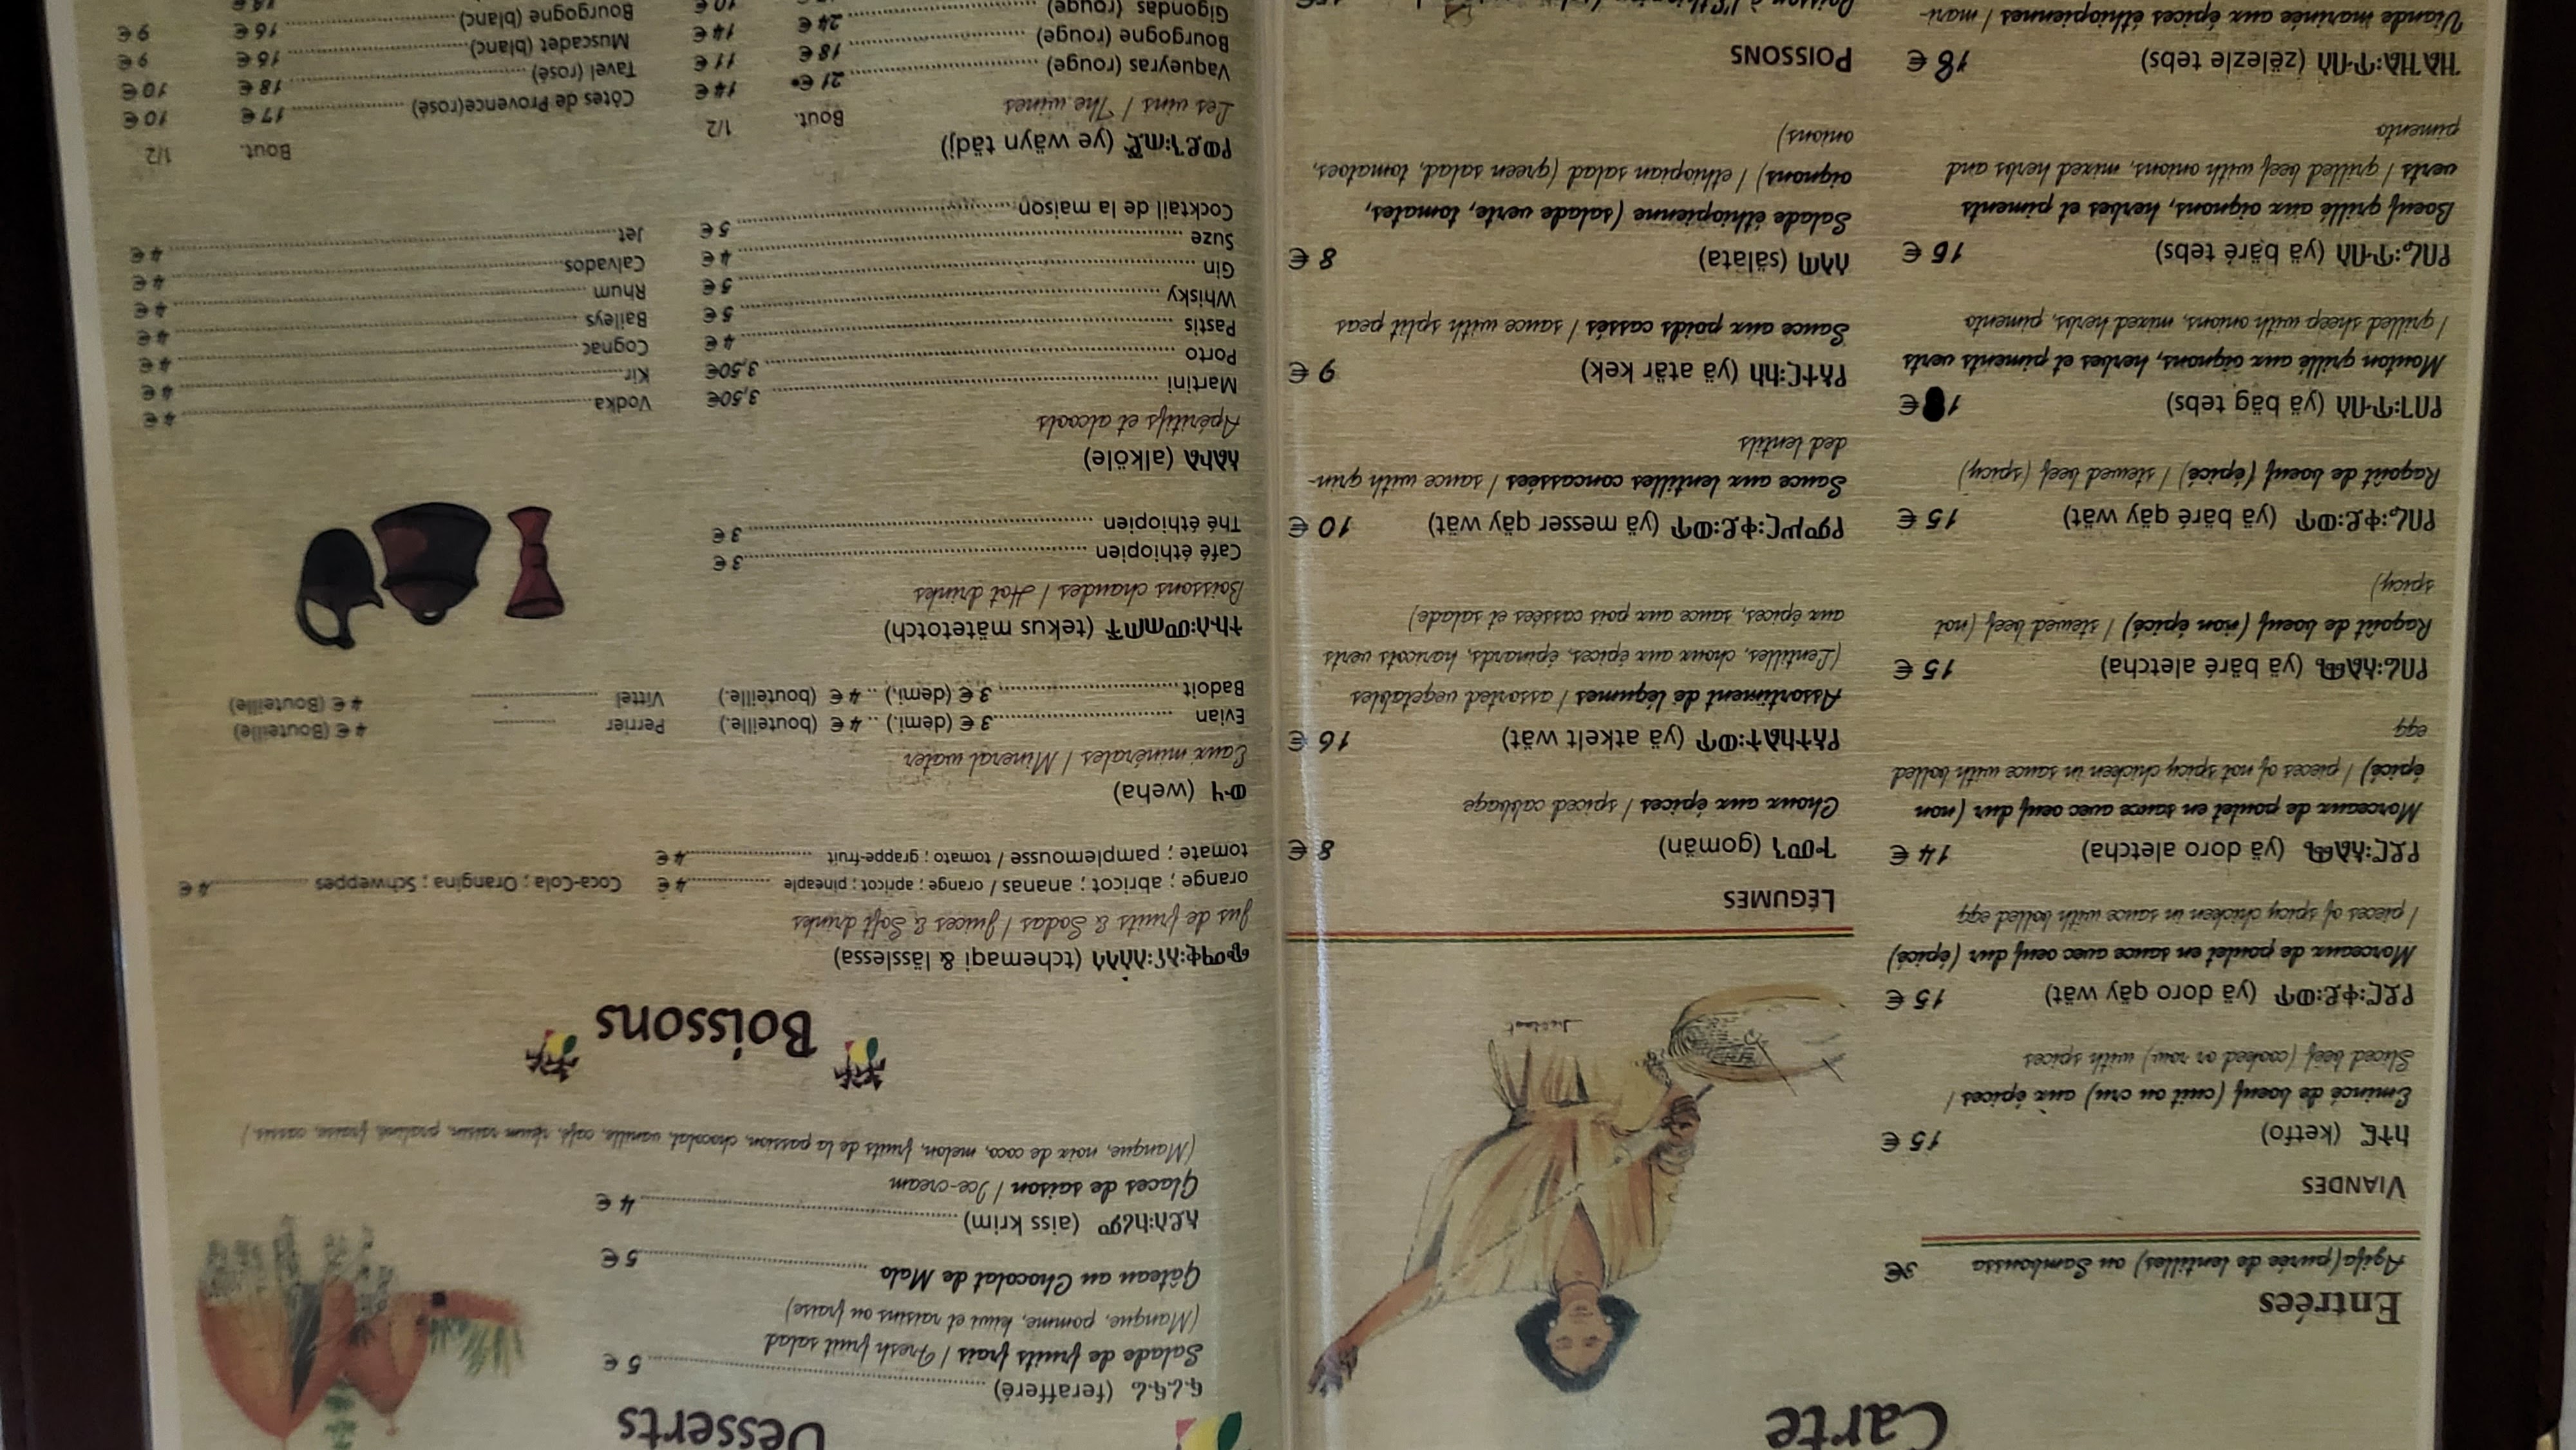 Carte
Entrées
Agifa (purée de lentilles) ou Samboussa 3€
VIANDES
ክትፎ (ketfo) 15 €
Emincé de boeuf (cuit ou cru) aux épices /
Sliced beef (cooked or raw) with spices
የዶሮ:ቀይ:ወጥ (yä doro qäy wät) 15 €
Morceaux de poulet en sauce avec oeuf dur (épicé)
/ pieces of spicy chicken in sauce with bolled egg
የዶሮ:አለጫ (yä doro aletcha) 14 €
Morceaux de poulet en sauce avec oeuf dur (non
épicé) / pieces of not spicy chicken in sauce with bolled
egg
የበሬ:አለጫ (yä bäré aletcha) 15 €
Ragoût de boeuf (non épicé) / stewed beef (not
spicy)
የበሬ:ቀይ:ወጥ (yä bäré qäy wät) 15 €
Ragoût de boeuf (épicé) / stewed beef (spicy)
የበግ:ጥብስ (yä bäg tebs)
Mouton grillé aux oignons, herbes et piments verts
/ grilled sheep with onions, mixed herbs, pimento
የበሬ:ጥብስ (yä bäré tebs) 16 €
Boeuf grillé aux oignons, herbes et piments
verts / grilled beef with onions, mixed herbs and
pimento
ዝልዝል:ጥብስ (zëlezle tebs) 18 €
Viande marinée aux épices éthiopiennes / mari-
LÉGUMES
ጎመን (gomän) 8 €
Choux aux épices / spiced cabbage
የአትክልት:ወጥ (yä atkelt wät) 16 €
Assortiment de légumes / assorted vegetables
(Lentilles, choux aux épices, épinards, haricots verts
aux épices, sauce aux pois cassées et salade)
የምሥር:ቀይ:ወጥ (yä messer qäy wät) 10 €
Sauce aux lentilles concassées / sauce with grin-
ded lentils
የአተር:ክክ (yä atär kek) 9 €
Sauce aux poids cassés / sauce with split peas
ሰላጣ (sälata) 8 €
Salade éthiopienne (salade verte, tomates,
oignons) / ethiopian salad (green salad, tomatoes,
onions)
POISSONS
Desserts
ፍራፍሬ (ferafferé)
Salade de fruits frais / Fresh fruit salad 5 €
(Mangue, pomme, kiwi et raisins ou fraise)
Gâteau au Chocolat de Malo 5 €
አይስ:ክሬም (aiss krim) 4 €
Glaces de saison / Ice-cream
(Mangue, noix de coco, melon, fruits de la passion, chocolat, vanille, café, rhum raisin, praliné, fraise, cassis)
Boissons
ጭማቂ:እና:ለስላሳ (tchemaqi & lässlessa)
Jus de fruits & Sodas / Juices & Soft drinks
orange ; abricot ; ananas / orange ; apricot ; pineaple 4 € Coca-Cola ; Orangina ; Schweppes 4 €
tomate ; pamplemousse / tomato ; grappe-fruit 4 €
ውሃ (weha)
Eaux minérales / Mineral water
Evian 3 € (demi.) .. 4 € (bouteille.) Perrier 4 € (Bouteille)
Badoit 3 € (demi.) .. 4 € (bouteille.) Vittel 4 € (Bouteille)
ትኩስ:መጠጦች (tekus mätetotch)
Boissons chaudes / Hot drinks
Café éthiopien 3 €
Thé éthiopien 3 €
አልኮል (alköle)
Apéritifs et alcools
Martini 3,50€ Vodka 4 €
Porto 3,50€ Kir 4 €
Pastis 4 € Cognac 4 €
Whisky 5 € Baileys 4 €
Gin 5 € Rhum 4 €
Suze 4 € Calvados 4 €
Cocktail de la maison 5 € Jet 4 €
የወይን:ጠጅ (ye wäyn tädj)
Les vins / The wines Bout. 1/2 Bout. 1/2
Vaqueyras (rouge) 21 € 14 € Côtes de Provence(rosé) 17 € 10 €
Bourgogne (rouge) 18 € 11 € Tavel (rosé) 18 € 10 €
Gigondas (rouge) 24 € 14 € Muscadet (blanc) 16 € 9 €
Bourgogne (blanc) 16 € 9 €